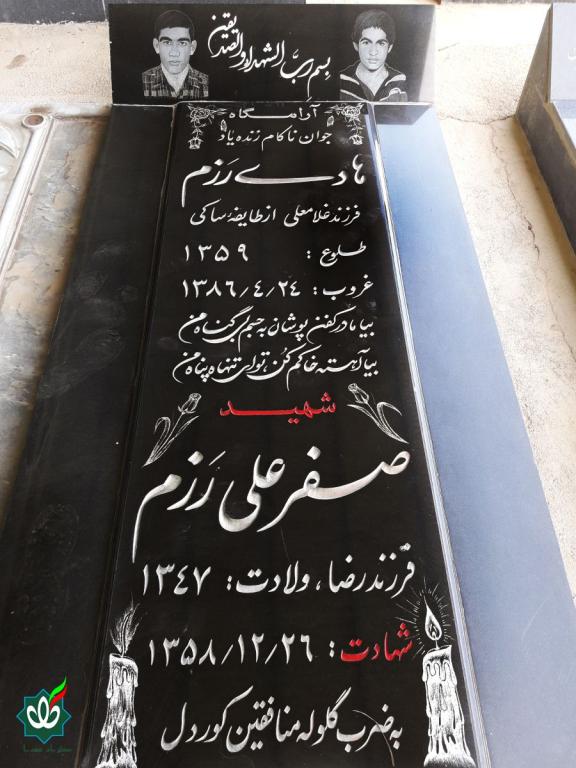 بسم ربَّ الشهداء والصدیقین
آرامگاه
جوان ناکام زنده یاد
هادی رَزم
فرزند غلامعلی از طایفهٔ ساکی
طلوع : ۱۳۵۹
غروب : ۱۳۸۶/۴/۲۴
بیا مادر کفن پوشان به جسم بی گناه من
بیا آهسته خاکم کن، توای تنها پناه من
شهید
صفر علی رَزم
فرزند رضا، ولادت : ۱۳۴۷
شهادت : ۱۳۵۸/۱۲/۲۶
به ضرب گلوله منافقین کوردل